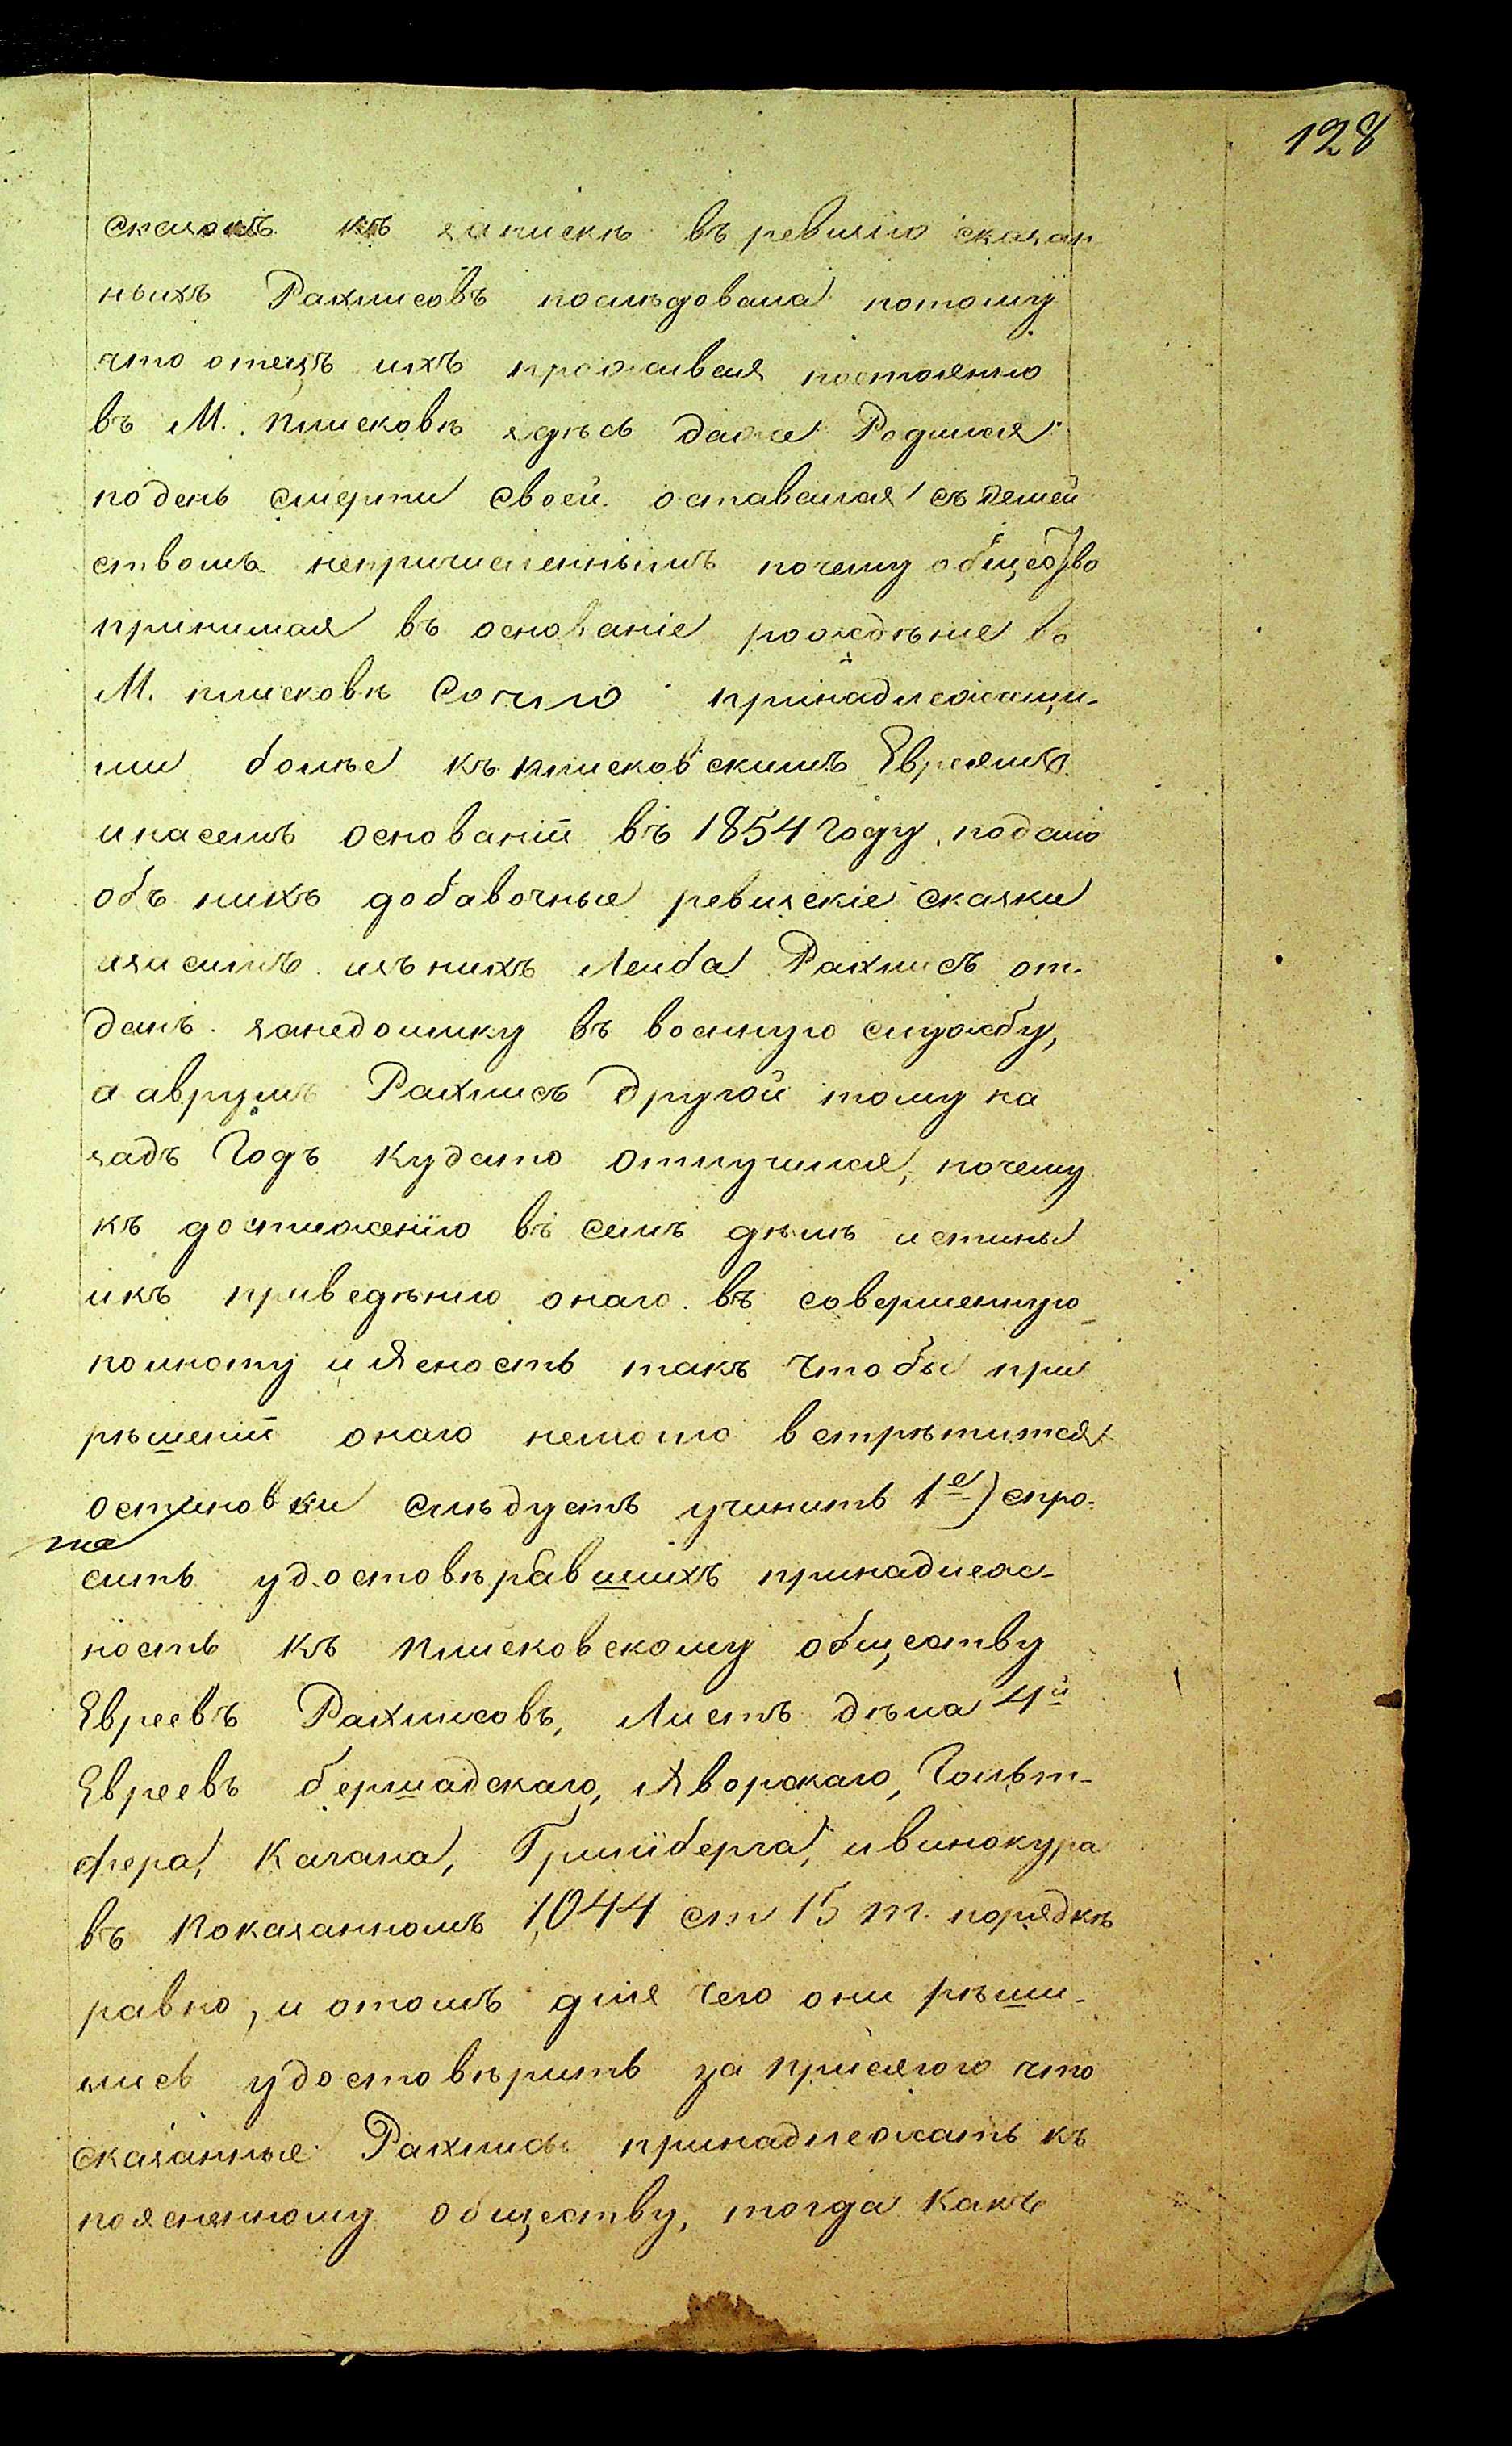 128
сказокъ къ запискѣ въ ревизію сказан
ныхъ Рахлисовъ послѣдовала потому
что отецъ ихъ проживая постоянно
въ М. Плисковѣ здѣсь даже Родился
по день смерти своей оставался съ Семей
ствомъ непричисленнымъ почему общество
принимая въ основаніе рождѣние въ
М. плисковѣ Сочло принадлежащи-
ми болѣе къ плисковскимъ Евреямъ
и на семъ основаніи въ 1854 Году подано
объ нихъ добавочные ревизскіе сказки
изъ нихъ Лейба Рахлисъ от-
данъ занедоимку въ военную службу,
а аврумъ Рахлисъ другой тому на
задъ Годъ кудато отлучился, почему
къ достиженію въ семъ дѣлѣ истины
икъ приведѣнію онаго въ совершенную
полноту и Ясность такъ чтобы при
рѣшеніи онаго немогло встрѣтится
остановки слѣдуетъ учинить 1е) спро-
та
сить удостовѣравшихъ принадлеж-
ность къ плисковскому обществу
Евреевъ Рахлисовъ, Листъ дѣла 4й
Евреевъ бершадскаго, Яворскаго, Гольт-
фера, Кагана, Гринберга, и винокура
въ показанномъ 1,044 ст 15 т. порядкѣ
равно, и отомъ для чего они рѣши-
лись удостовѣрить за присягою что
сказанные Рахлисы принадлежатъ къ
поясненному обществу, тогда какъ